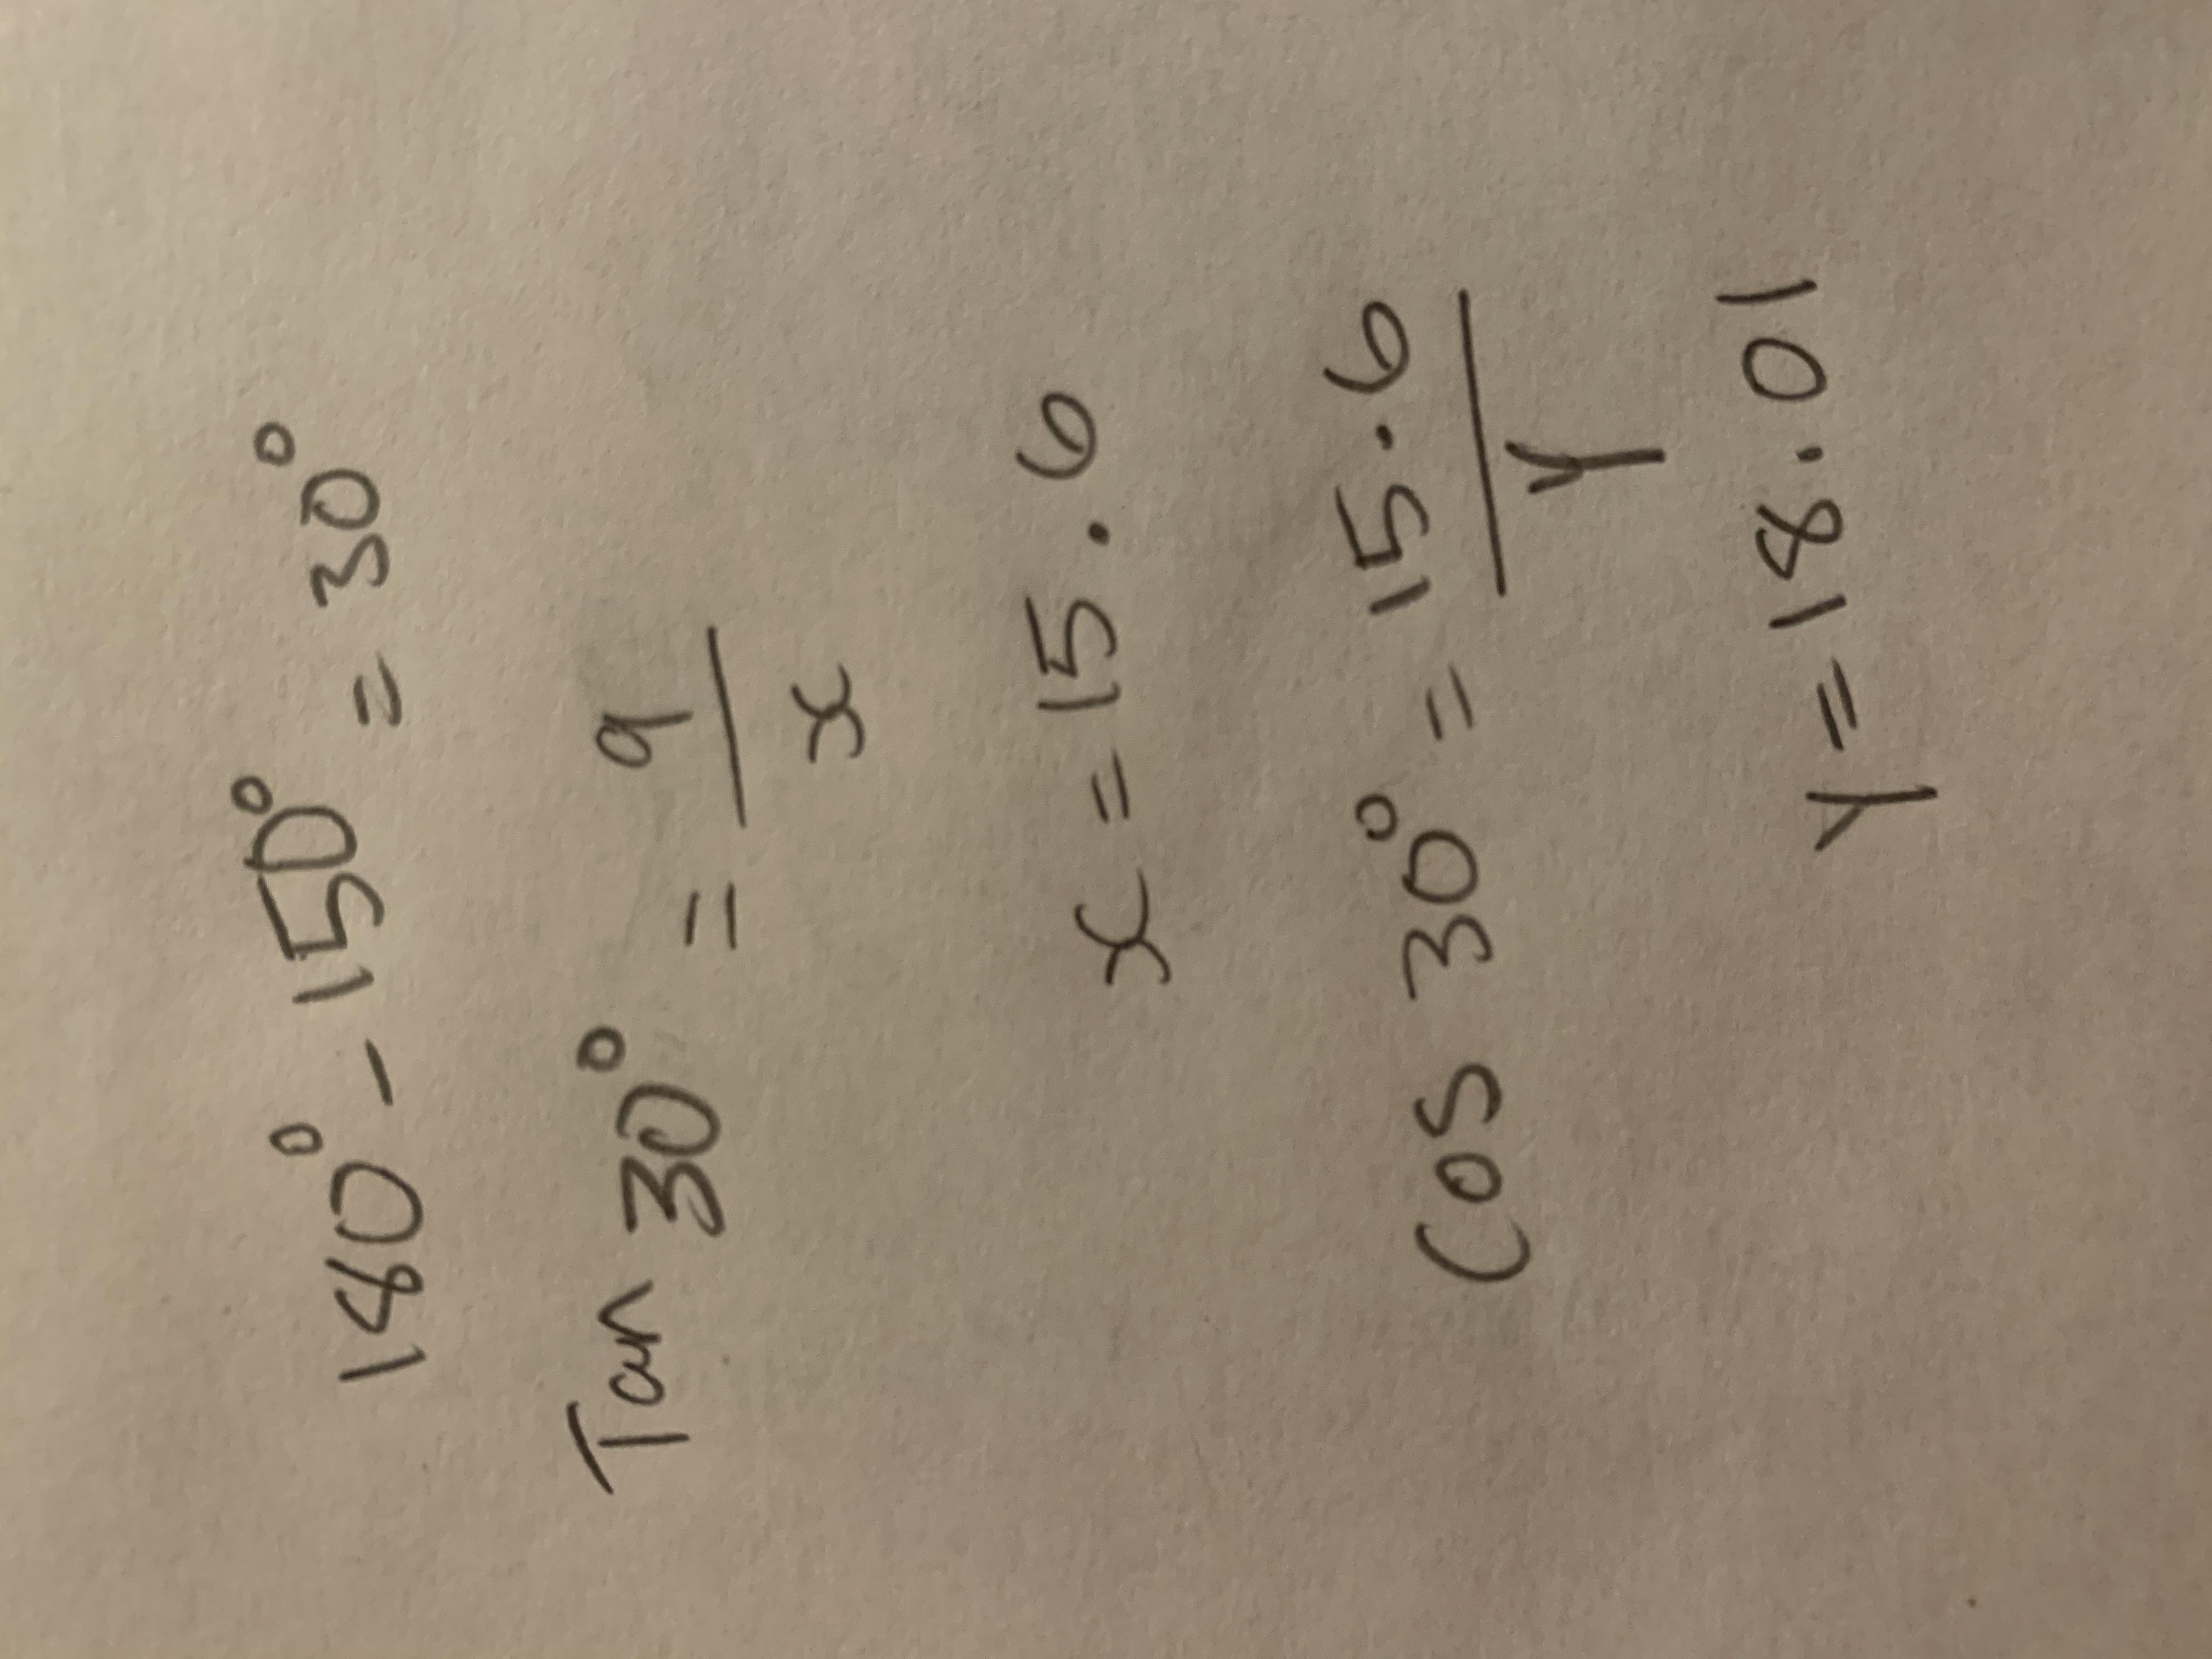 180° - 150° = 30°
Tan 30° = 9/x
x = 15.6
Cos 30° = 15.6/y
y = 18.01